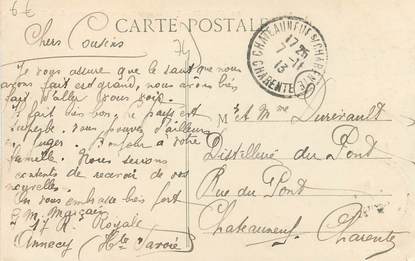 6€
CARTE POSTALE
74
Chers Cousins
Je vous assure que le saut que nous
avons fait est grand, nous avons bès
fait d'aller vous voir.
Il fait bès bon, le pays est
superbe. Vous pouvez d'ailleurs
en juger. Bonjour à votre
famille. Nous serons
contents de recevoir de vos
nouvelles.
On vous embrasse bès fort
M.
17 R. Royale
Annecy (Hte Savoie)
CHATEAUNEUF S/ CHARENTE
17 25
7 -11
13
CHARENTE
Mr et Mme Durivault
Distillerie du Pont
Rue du Pont
Chateauneuf
Charente